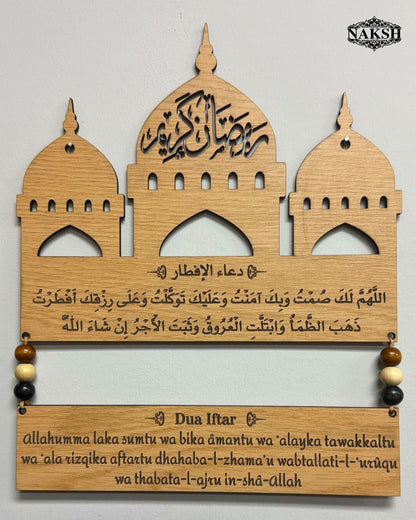 NAKSH
رمضان كريم
دعاء الإفطار
اللَّهُمَّ لَكَ صُمْتُ وَبِكَ آمَنْتُ وَعَلَيْكَ تَوَكَّلْتُ وَعَلَى رِزْقِكَ أَفْطَرْتُ
ذَهَبَ الظَّمَأُ وَابْتَلَّتِ الْعُرُوقُ وَثَبَتَ الْأَجْرُ إِنْ شَاءَ اللَّهُ
Dua Iftar
Allahumma laka sumtu wa bika âmantu wa 'alayka tawakkaltu
wa 'ala rizqika aftartu dhahaba-l-zhama'u wabtallati-l-'urûqu
wa thabata-l-ajru in-shâ-Allah